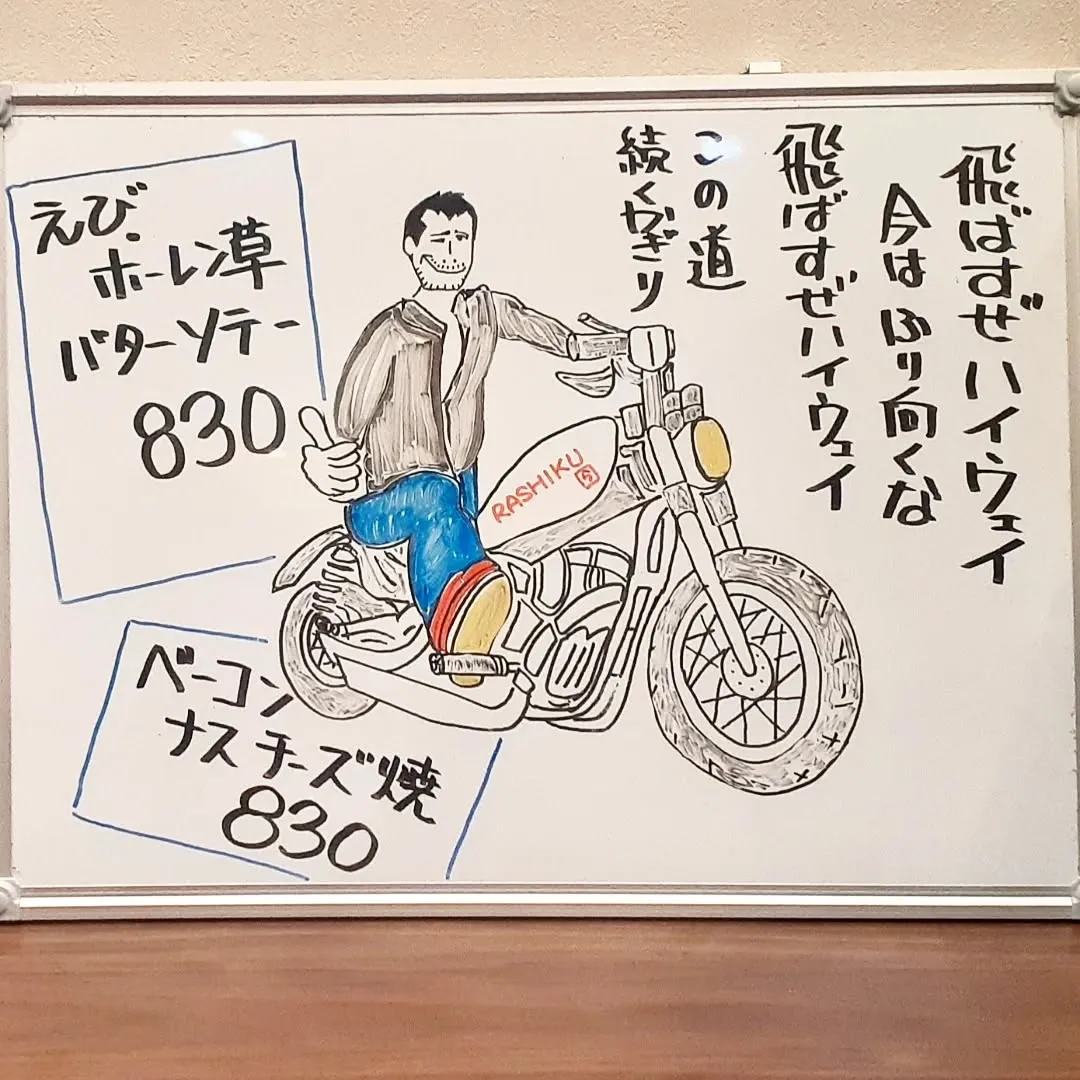 飛ばすぜハイウェイ
今はふり向くな
飛ばすぜハイウェイ
この道
続くかぎり
えび、
ホーレン草
バターソテー
830
RASHIKU
ベーコン
ナスチーズ焼
830